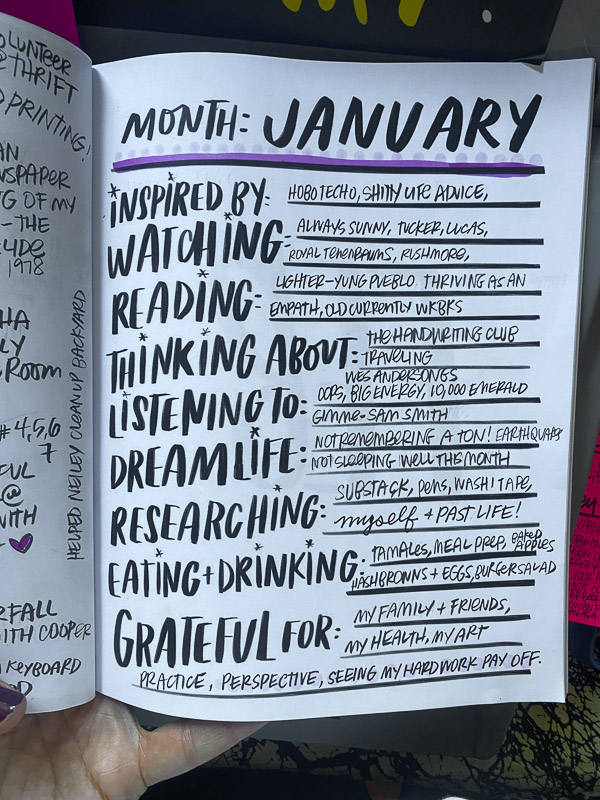 VOLUNTEER
@ THRIFT
PRINTING!
OF MY
-THE
1978
ROOM
# 4,5,6
7
@
WITH
WITH COOPER
KEYBOARD
HELPED NEILEY CLEAN UP BACKYARD
MONTH: JANUARY
INSPIRED BY: HOBOTECHO, SHITTY LIFE ADVICE,
WATCHING: ALWAYS SUNNY, TUCKER, LUCAS,
ROYAL TENENBAUMS, RUSHMORE,
READING: LIGHTER-YUNG PUEBLO THRIVING AS AN
EMPATH, OLD CURRENTLY WKBKS
THINKING ABOUT: THE HANDWRITING CLUB
TRAVELING
WES ANDERSONGS
LISTENING TO: OOPS, BIG ENERGY, 10,000 EMERALD
GIMME-SAM SMITH
DREAM LIFE: NOT REMEMBERING A TON! EARTHQUAKES
NOT SLEEPING WELL THIS MONTH
RESEARCHING: SUBSTACK, PENS, WASHI TAPE,
myself + PAST LIFE!
EATING + DRINKING: TAMALES, MEAL PREP, BAKED APPLES
HASHBROWNS + EGGS, BURGER SALAD
GRATEFUL FOR: MY FAMILY + FRIENDS,
MY HEALTH, MY ART
PRACTICE, PERSPECTIVE, SEEING MY HARDWORK PAY OFF.